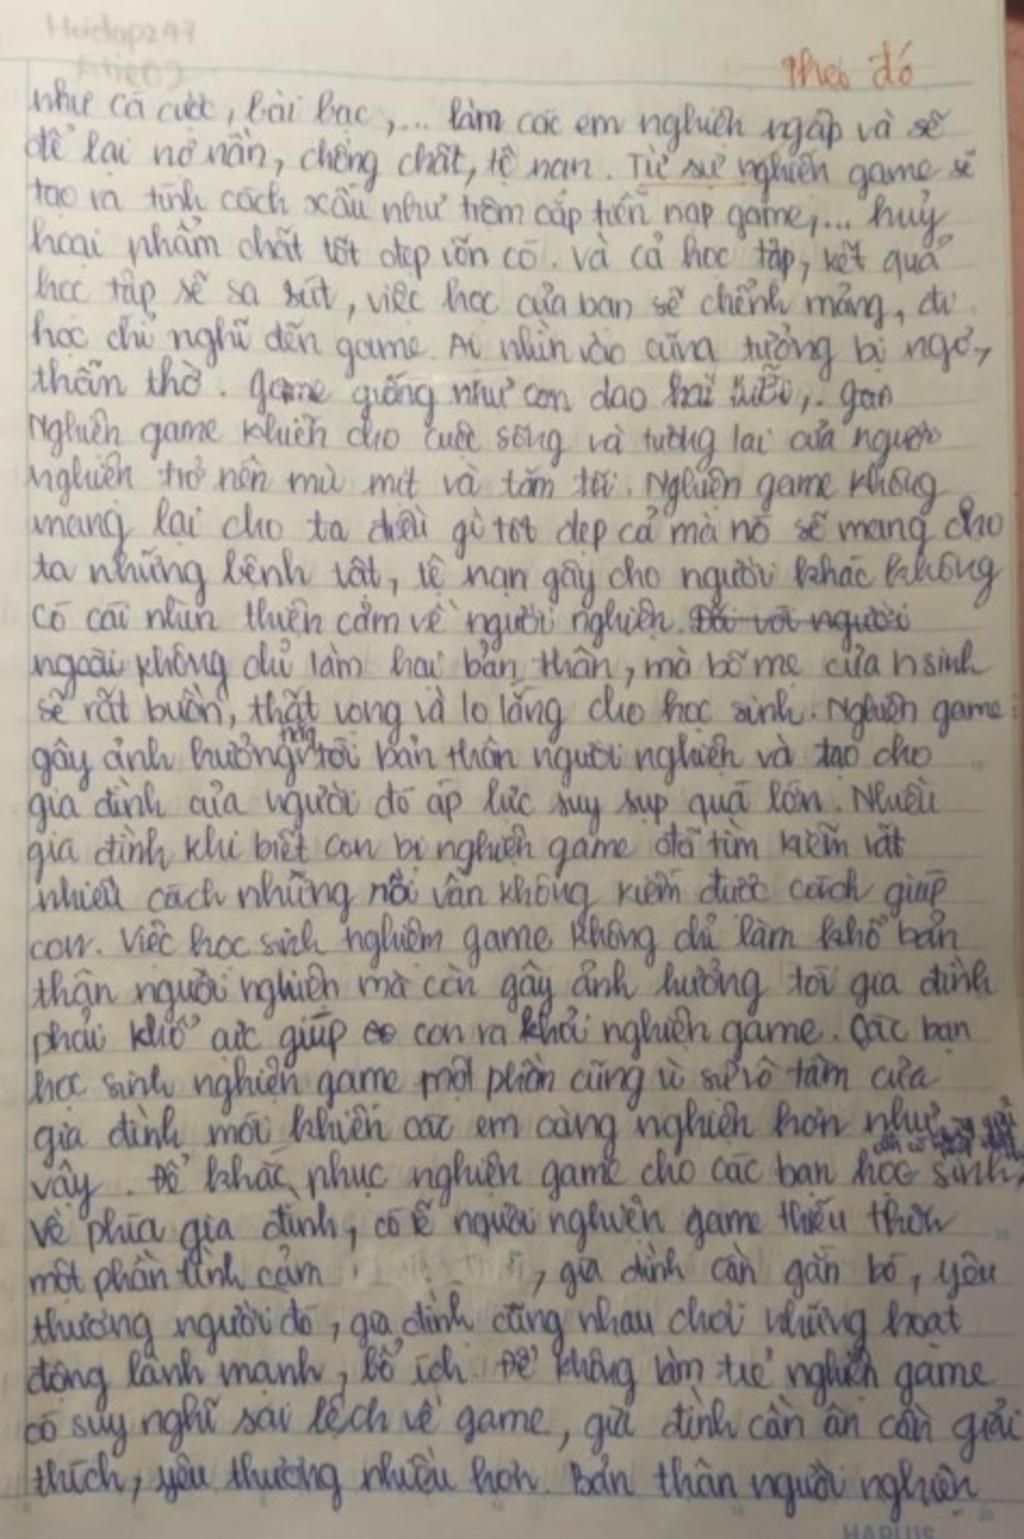 Hoidap247
Theo đó
như cá cược, bài bạc,... làm các em nghiện ngập và sẽ
để lại nợ nần, chồng chất, tệ nạn. Từ sự nghiện game sẽ
tạo ra tính cách xấu như trộm cắp tiền nạp game,... huỷ
hoại phẩm chất tốt đẹp vốn có. Và cả học tập, kết quả
học tập sẽ sa sút, việc học của bạn sẽ chểnh mảng, đi
học chỉ nghĩ đến game. Ai nhìn vào cũng tưởng bị ngơ,
thẩn thờ. Game giống như con dao hai lưỡi,.
Nghiện game khiến cho cuộc sống và tương lai của người
nghiện trở nên mù mịt và tăm tối. Nghiện game không
mang lại cho ta điều gì tốt đẹp cả mà nó sẽ mang cho
ta những bệnh tật, tệ nạn gây cho người khác không
có cái nhìn thiện cảm về người nghiện. Đối với người
ngoài không chỉ làm hại bản thân, mà bố mẹ của hsinh
sẽ rất buồn, thất vọng và lo lắng cho học sinh. Nghiện game
gây ảnh hưởng tới bản thân người nghiện và tạo cho
gia đình của người đó áp lực suy sụp quá lớn. Nhiều
gia đình khi biết con bị nghiện game đã tìm kiếm rất
nhiều cách những vẫn không kiếm được cách giúp
con. Việc học sinh nghiêm game không chỉ làm khổ bản
thân người nghiện mà còn gây ảnh hưởng tới gia đình
phải khổ cực giúp con ra khỏi nghiện game. Các bạn
học sinh nghiện game một phần cũng vì sự vô tâm của
gia đình mới khiến các em càng nghiện hơn như
vậy. Để khắc phục nghiện game cho các bạn học sinh,
về phía gia đình, có lẽ người nghiện game thiếu thốn
một phần tình cảm, gia đình cần gắn bó, yêu
thương người đó, gia đình cùng nhau chơi những hoạt
động lành mạnh, bổ ích. Để không làm trẻ nghiện game
có suy nghĩ sai lệch về game, gia đình cần ân cần giải
thích, yêu thương nhiều hơn. Bản thân người nghiện
HAPLUS